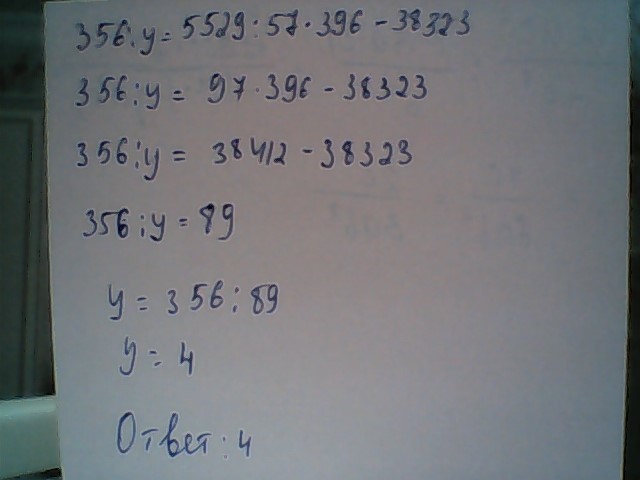 356:y = 5529:57·396 - 38323
356:y = 97·396 - 38323
356:y = 38412 - 38323
356:y = 89
y = 356:89
y = 4
Ответ: 4